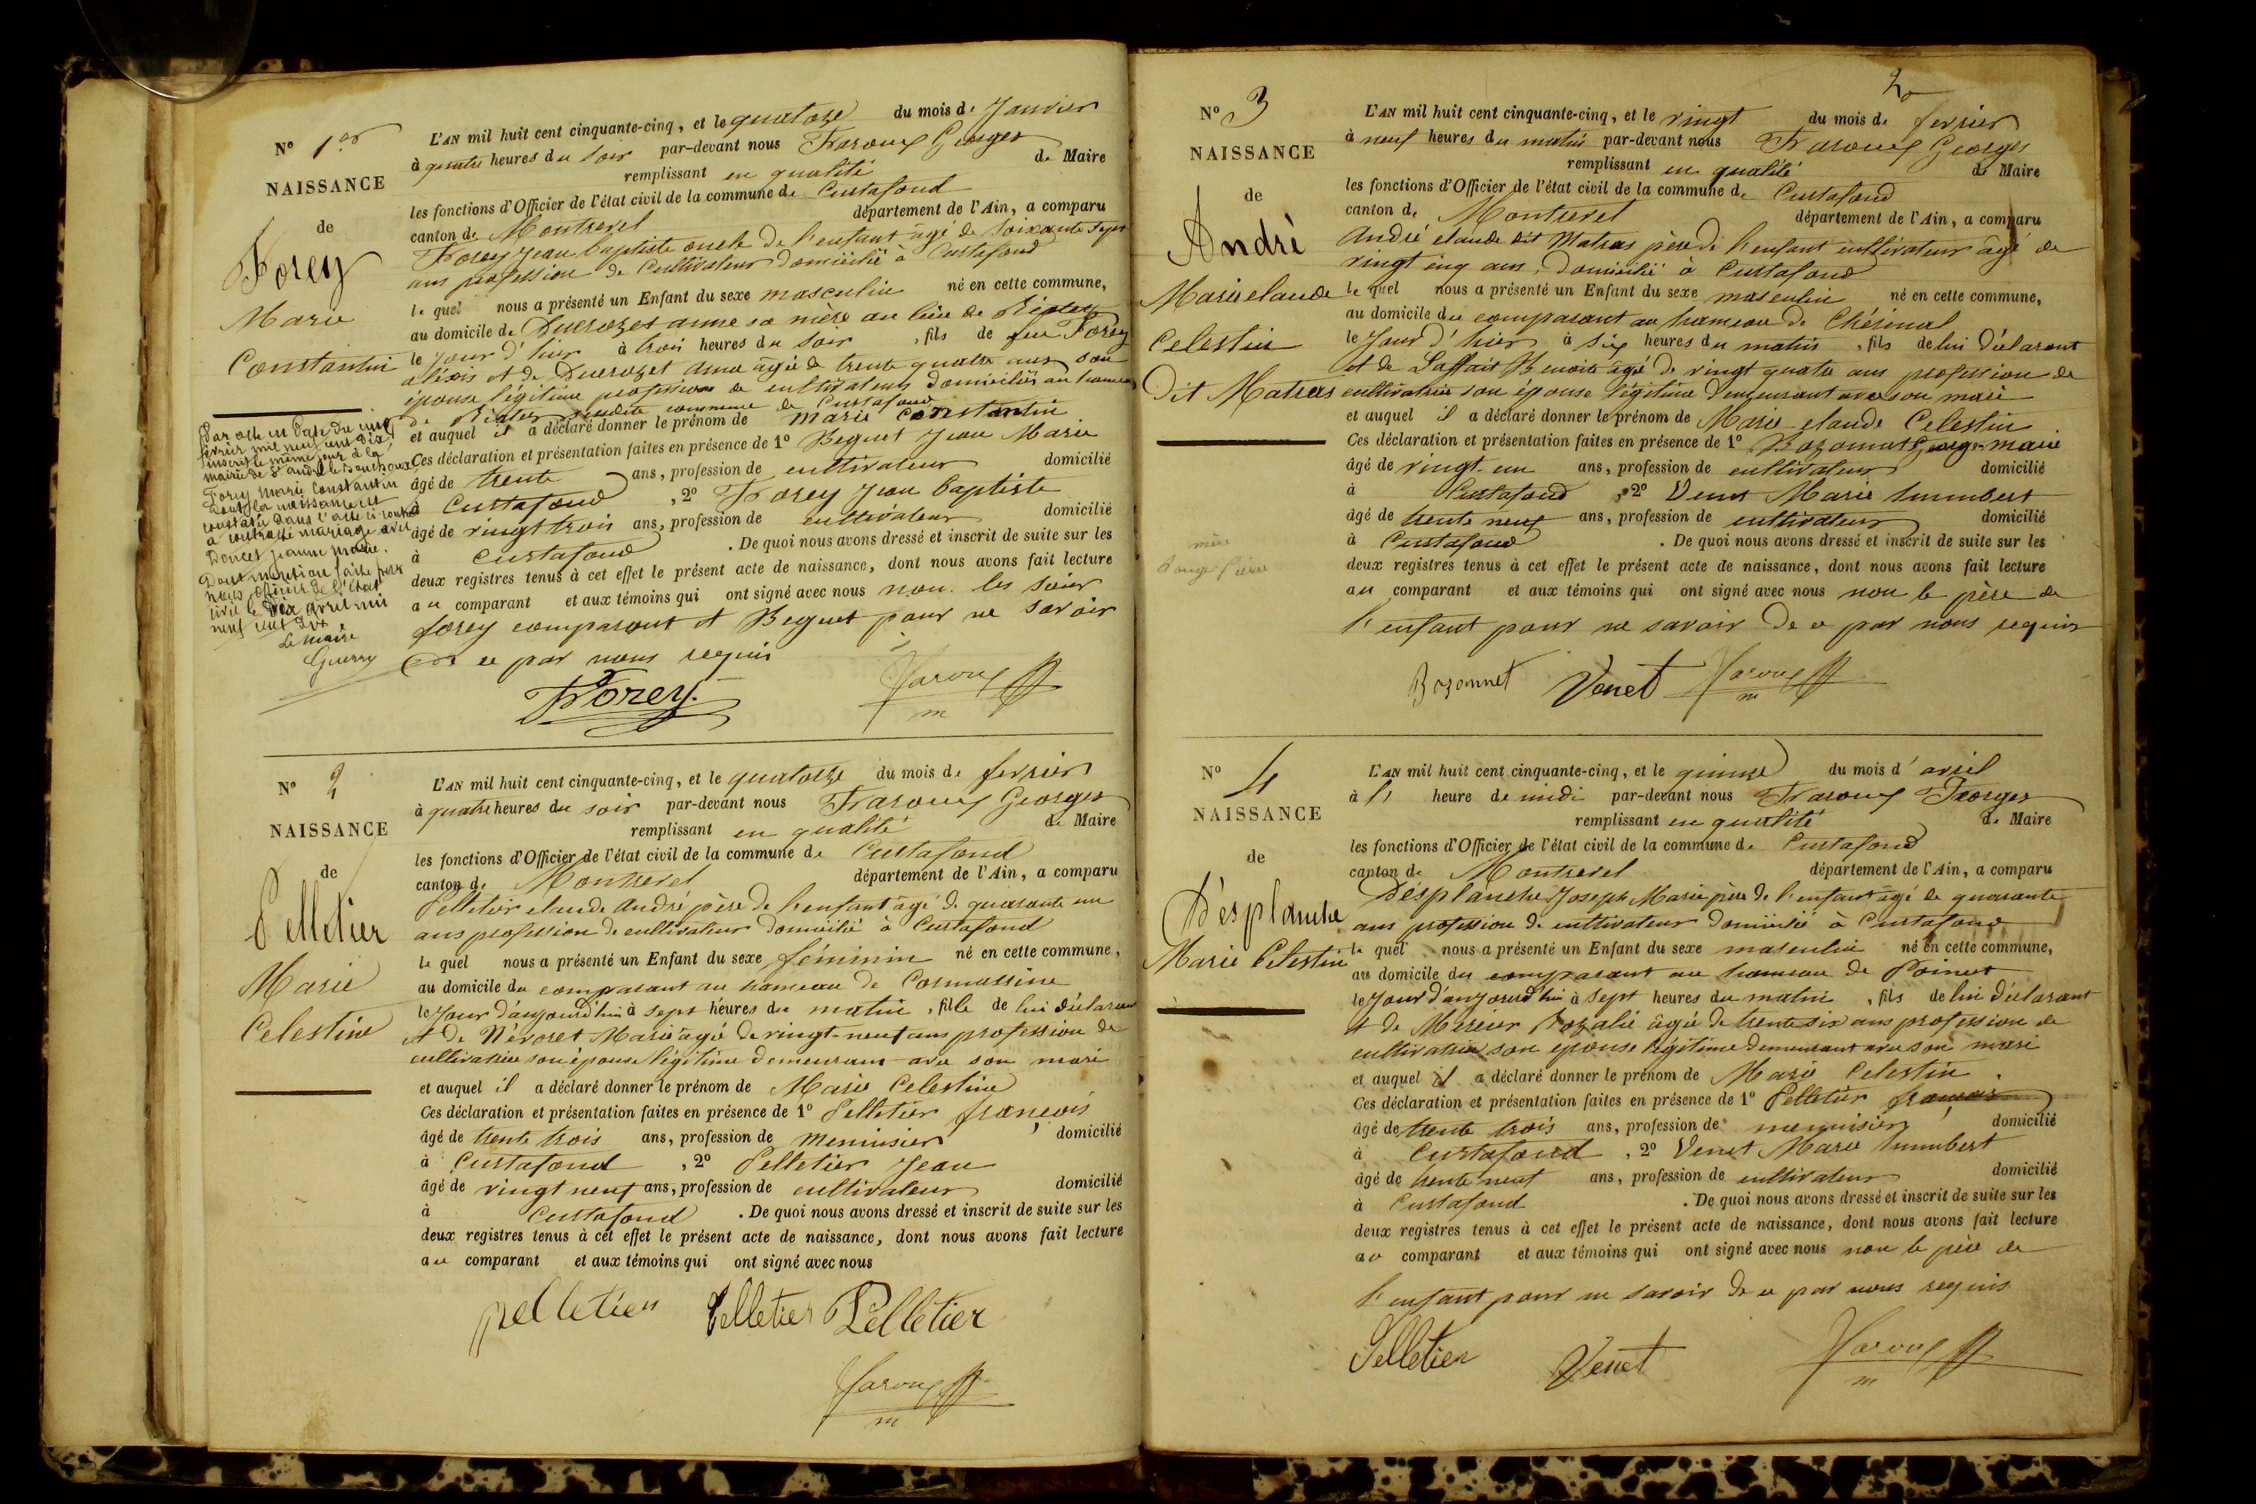 N° 1er
NAISSANCE
de
Forey
Marie
Constantin
Par acte en date du
février mil neuf cent dix
inscrit le même jour à la
mairie de St André le Bouchoux
Forey Marie Constantin
dont la naissance est
constatée dans l'acte ci contre
a contracté mariage avec
Doucet jeanne marie.
Dont mention faite par
nous officier de l'état
civil le dix avril mil
neuf cent dix
Le maire
Guerry
L'AN mil huit cent cinquante-cinq, et le quatorze du mois de Janvier
à quatre heures du soir par-devant nous Faroux Georges
remplissant en qualité de Maire
les fonctions d'Officier de l'état civil de la commune de Curtafond
canton de Montrevel département de l'Ain, a comparu
Forey Jean baptiste oncle de l'enfant âgé de soixante sept
ans profession de Cultivateur domicilié à Curtafond
le quel nous a présenté un Enfant du sexe masculin né en cette commune,
au domicile de Ducrozet anne sa mère au lieu de
le jour d'hier à trois heures du soir, fils de feu Forey
aléxis et de Ducrozet anne âgée de trente quatre ans son
épouse légitime profession de cultivateurs domiciliés au hameau
de susdite commune de Curtafond
et auquel il a déclaré donner le prénom de marie constantin
Ces déclaration et présentation faites en présence de 1° Beguet Jean Marie
âgé de trente ans, profession de cultivateur domicilié
à Curtafond, 2° Forey Jean baptiste
âgé de vingt trois ans, profession de cultivateur domicilié
à Curtafond. De quoi nous avons dressé et inscrit de suite sur les
deux registres tenus à cet effet le présent acte de naissance, dont nous avons fait lecture
au comparant et aux témoins qui ont signé avec nous non les
forey comparant et Beguet pour ne savoir
de ce par nous requis
Forey.
Faroux
m
N° 2
NAISSANCE
de
Pelletier
Marie
Celestine
L'AN mil huit cent cinquante-cinq, et le quatorze du mois de fevrier
à quatre heures du soir par-devant nous Faroux Georges
remplissant en qualité de Maire
les fonctions d'Officier de l'état civil de la commune de Curtafond
canton de Montrevel département de l'Ain, a comparu
Pelletier claude André père de l'enfant âgé de quarante un
ans profession de cultivateur domicilié à Curtafond
le quel nous a présenté un Enfant du sexe féminin né en cette commune,
au domicile du comparant au hameau de Cormassine
le Jour d'aujourd'hui à sept heures du matin, fille de lui déclarant
et de Névoret Marie âgé de vingt-neuf ans profession de
cultivatrice son épouse légitime demeurant avec son mari
et auquel il a déclaré donner le prénom de Marie Celestine
Ces déclaration et présentation faites en présence de 1° Pelletier françois
âgé de trente trois ans, profession de menuisier domicilié
à Curtafond, 2° Pelletier Jean
âgé de vingt neuf ans, profession de cultivateur domicilié
à Curtafond. De quoi nous avons dressé et inscrit de suite sur les
deux registres tenus à cet effet le présent acte de naissance, dont nous avons fait lecture
au comparant et aux témoins qui ont signé avec nous
pelletier Pelletier Pelletier
Faroux
m
2
N° 3
NAISSANCE
de
Andrè
Marie claude
Celestin
Dit Matras
L'AN mil huit cent cinquante-cinq, et le vingt du mois de fevrier
à neuf heures du matin par-devant nous Faroux Georges
remplissant en qualité de Maire
les fonctions d'Officier de l'état civil de la commune de Curtafond
canton de Montrevel département de l'Ain, a comparu
André claude dit Matras père de l'enfant cultivateur âgé de
vingt cinq ans, domicilié à Curtafond
le quel nous a présenté un Enfant du sexe masculin né en cette commune,
au domicile du comparant au hameau de Chésinal
le Jour d'hier à six heures du matin, fils de lui déclarant
et de Laffait Benoite âgé de vingt quatre ans profession de
cultivatrice son épouse légitime demeurant avec son mari
et auquel il a déclaré donner le prénom de Marie claude Celestin
Ces déclaration et présentation faites en présence de 1° Bozonnet George marie
âgé de vingt-un ans, profession de cultivateur domicilié
à Curtafond, 2° Venet Marie humbert
âgé de trente neuf ans, profession de cultivateur domicilié
à Curtafond. De quoi nous avons dressé et inscrit de suite sur les
deux registres tenus à cet effet le présent acte de naissance, dont nous avons fait lecture
au comparant et aux témoins qui ont signé avec nous non le père de
l'enfant pour ne savoir de ce par nous requis
Bozonnet Venet Faroux
m
N° 4
NAISSANCE
de
Désplanche
Marie Celestin
L'AN mil huit cent cinquante-cinq, et le quinze du mois d'avril
à heure de midi par-devant nous Faroux Georges
remplissant en qualité de Maire
les fonctions d'Officier de l'état civil de la commune de Curtafond
canton de Montrevel département de l'Ain, a comparu
Désplanche Joseph Marie père de l'enfant âgé de quarante
ans profession de cultivateur domicilié à Curtafond
le quel nous a présenté un Enfant du sexe masculin né en cette commune,
au domicile du comparant au hameau de
le Jour d'aujourd'hui à sept heures du matin, fils de lui déclarant
et de Mercier Rozalie âgée de trente six ans profession de
cultivatrice son épouse légitime demeurant avec son mari
et auquel il a déclaré donner le prénom de Marie Celestin
Ces déclaration et présentation faites en présence de 1° Pelletier françois
âgé de trente trois ans, profession de menuisier domicilié
à Curtafond, 2° Venet Marie humbert
âgé de trente neuf ans, profession de cultivateur domicilié
à Curtafond. De quoi nous avons dressé et inscrit de suite sur les
deux registres tenus à cet effet le présent acte de naissance, dont nous avons fait lecture
au comparant et aux témoins qui ont signé avec nous non le père de
l'enfant pour ne savoir de ce par nous requis
Pelletier Venet Faroux
m